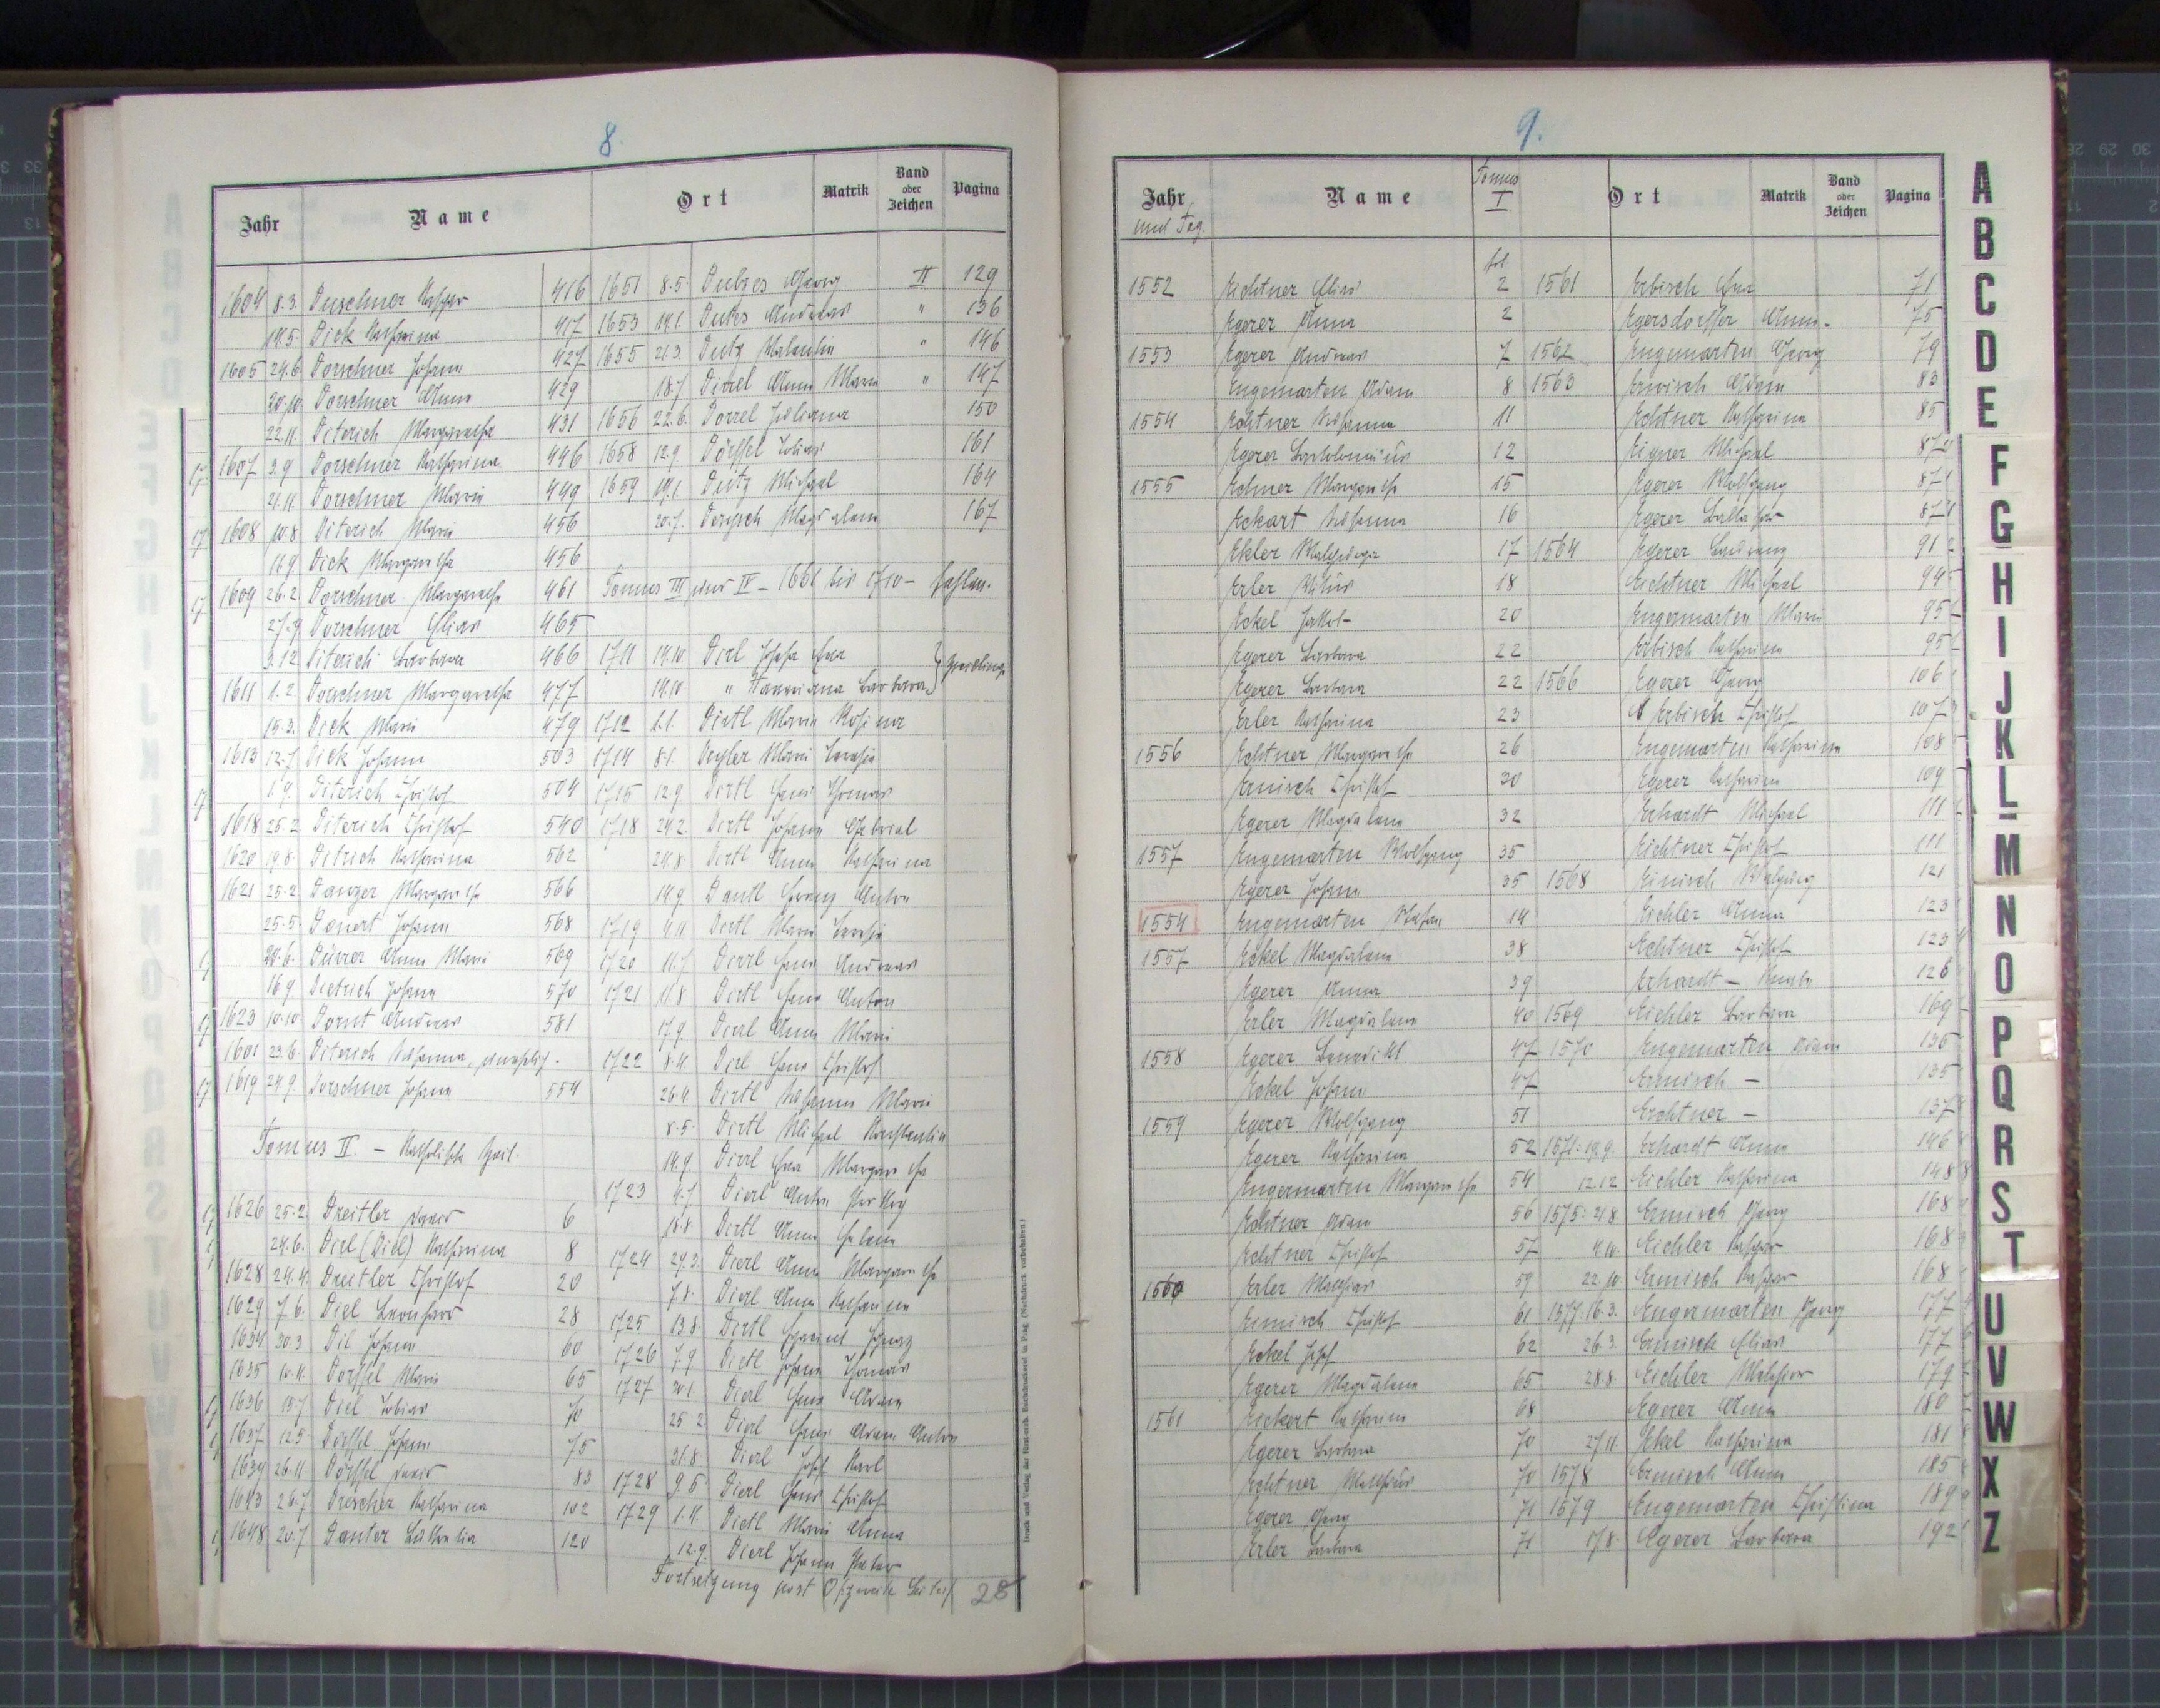 8.
Jahr Name Ort Matrik Band oder Zeichen Pagina
1604 8.3. Duschner Kaspar 416
19.5. Dick Katharina 417
1605 24.6. Dorschner Johann 427
20.10. Dorschner Anna 429
22.11. Diterich Margaretha 431
1607 3.9 Dorschner Katharina 446
21.11. Dorschner Maria 449
1608 10.8. Diterich Maria 456
11.9. Dick Margaretha 456
1609 26.2. Dorschner Margaretha 461
27.9. Dorschner Elias 465
3.12 Diterich Barbara 466
1611 1.2. Dorschner Margaretha 477
15.3. Dick Maria 479
1613 12.7. Dick Johann 503
1.9. Diterich Christof 504
1618 25.2. Diterich Christof 540
1620 19.8. Ditrich Katharina 562
1621 25.2. Danzer Margaretha 566
25.5. Donert Johann 568
20.6. Dürrer Anna Maria 569
16.9 Dietrich Johann 570
1623 10.10 Dornt Andreas 581
1601 23.6. Diterich Susanna, unehelich.
1619 24.9. Dorschner Johann 554
Tomus II. – Katholische Zeit.
1626 25.2. Dreitler David 6
24.6. Dirl (Diel) Katharina 8
1628 24.4. Dreitler Christof 20
1629 7.6. Diel Leonhard 28
1634 30.3. Dil Johann 60
1635 10.4. Dörffel Maria 65
1636 15.7. Diel Tobias 70
1637 12.5. Dörffel Johann 75
1639 26.11. Dörffel David 83
1643 26.7. Drescher Katharina 102
1648 20.7. Danter 120
1651 8.5. Georg II 129
1653 19.1. Andreas " 136
1655 21.3. Dutz Valentin " 146
18.7. Dirrel Anna Maria " 147
1656 22.6. Dorrel Juliana 150
1658 12.9. Dörffel Tobias 161
1659 19.1. Dutz Michael 164
20.7. Magdalena 167
Tomus III und IV – 1661 bis 1710 – fehlen.
1711 19.10 Dirl Josefa Eva } Zwillinge
19.10. " Barbara
1712 1.1. Dirtl Maria Rosina
1714 8.1. Maria Theresia
1715 12.9. Dirtl Hans Thomas
1718 24.2. Dirtl Johann Gabriel
24.8. Dirtl Anna Katharina
14.9. Dantl Franz Anton
1719 4.11 Dirtl Maria Theresia
1720 11.7. Dirrl Hans Andreas
1721 11.8. Dirtl Hans Anton
17.9. Dirrl Anna Maria
1722 8.4. Dirl Hans Christof
26.4. Dirtl Susanna Maria
8.5. Dirtl Michael Konstantin
14.9. Dirrl Eva Margaretha
1723 4.7. Dierl Anton
18.8. Dirtl Anna Helena
1724 29.3. Dierl Anna Margaretha
7.8. Dierl Anna Katharina
1725 13.8. Dirtl Ignaz
1726 7.9 Dietl Johann Thomas
1727 30.1. Dierl Hans Adam
25.2. Dierl Hans Adam Anton
31.8. Dierl Josef Karl
1728 9.5. Dierl Hans Christof
1729 1.4. Dietl Maria Anna
12.9. Dierl Johann Peter
Fortsetzung post O (zweite Seite)
28
9.
Jahr und Tag. Name Tomus I Ort Matrik Band oder Zeichen Pagina
fol.
1552 Eichtner Elias 2
Egerer Anna 2
1553 Egerer Andreas 7
Engemarten Adam 8
1554 Echtner Susanna 11
Egerer Bartolomäus 12
1555 Echner Margaretha 15
Eckart Susanna 16
Ekler Walpurga 17
Erler Vitus 18
Eckel Jakob 20
Egerer Barbara 22
Egerer Barbara 22
Erler Katharina 23
1556 Echtner Margaretha 26
Ernisch Christof 30
Egerer Magdalena 32
1557 Engemarten Wolfgang 35
Egerer Johann 35
1554 Engemarten Stefan 14
1557 Eckel Magdalena 38
Egerer Anna 39
Erler Magdalena 40
1558 Egerer Benedikt 47
Eckel Johann 47
1559 Egerer Wolfgang 51
Egerer Katharina 52
Engermarten Margaretha 54
Echtner Adam 56
Echtner Christof 57
1560 Erler Mathias 59
Ernisch Christof 61
Eckel Josef 62
Egerer Magdalena 65
1561 Eickert Katharina 68
Egerer Barbara 70
Echtner Matthäus 70
Egerer Georg 71
Erler Barbara 71
1561 Erbisch Eva 71
Egersdorffer Anna. 75
1562 Engemarten Georg 79
1563 Erwisch Adam 83
Echtner Katharina 85
Eigner Michael 87
Egerer Wolfgang 87
Egerer Balthasar 87
1564 Egerer 91
Eichtner Michael 94
Engermarten Maria 95
Erbisch Katharina 95
1566 Egerer Georg 106
Erbisch Christof 107
Engemarten Katharina 108
Egerer Katharina 109
Erhardt Michael 111
Eichtner Christof 111
1568 Einisch Walpurg 121
Eichler Anna 123
Echtner Christof 123
Erhardt – Knabe 126
1569 Eichler Barbara 169
1570 Engemarten Adam 135
Ernisch – 135
Erchtner – 137
1571: 19.9. Erhardt Anna 146
12.12 Eichler Katharina 148
1575: 24.8. Ernisch Georg 168
4.10. Eichler Kaspar 168
22.10 Ernisch Kaspar 168
1577: 16.3. Engermarten Georg 177
26.3. Ernisch Elias 177
28.8. Eichler Melchior 179
Egerer Anna 180
27.11. Ekel Katharina 181
1578 Ernisch Anna 185
1579 Engemarten Christina 189
17.8. Egerer Barbara 192
A
B
C
D
E
F
G
H
I
J
K
L
M
N
O
P
Q
R
S
T
U
V
W
X
Z